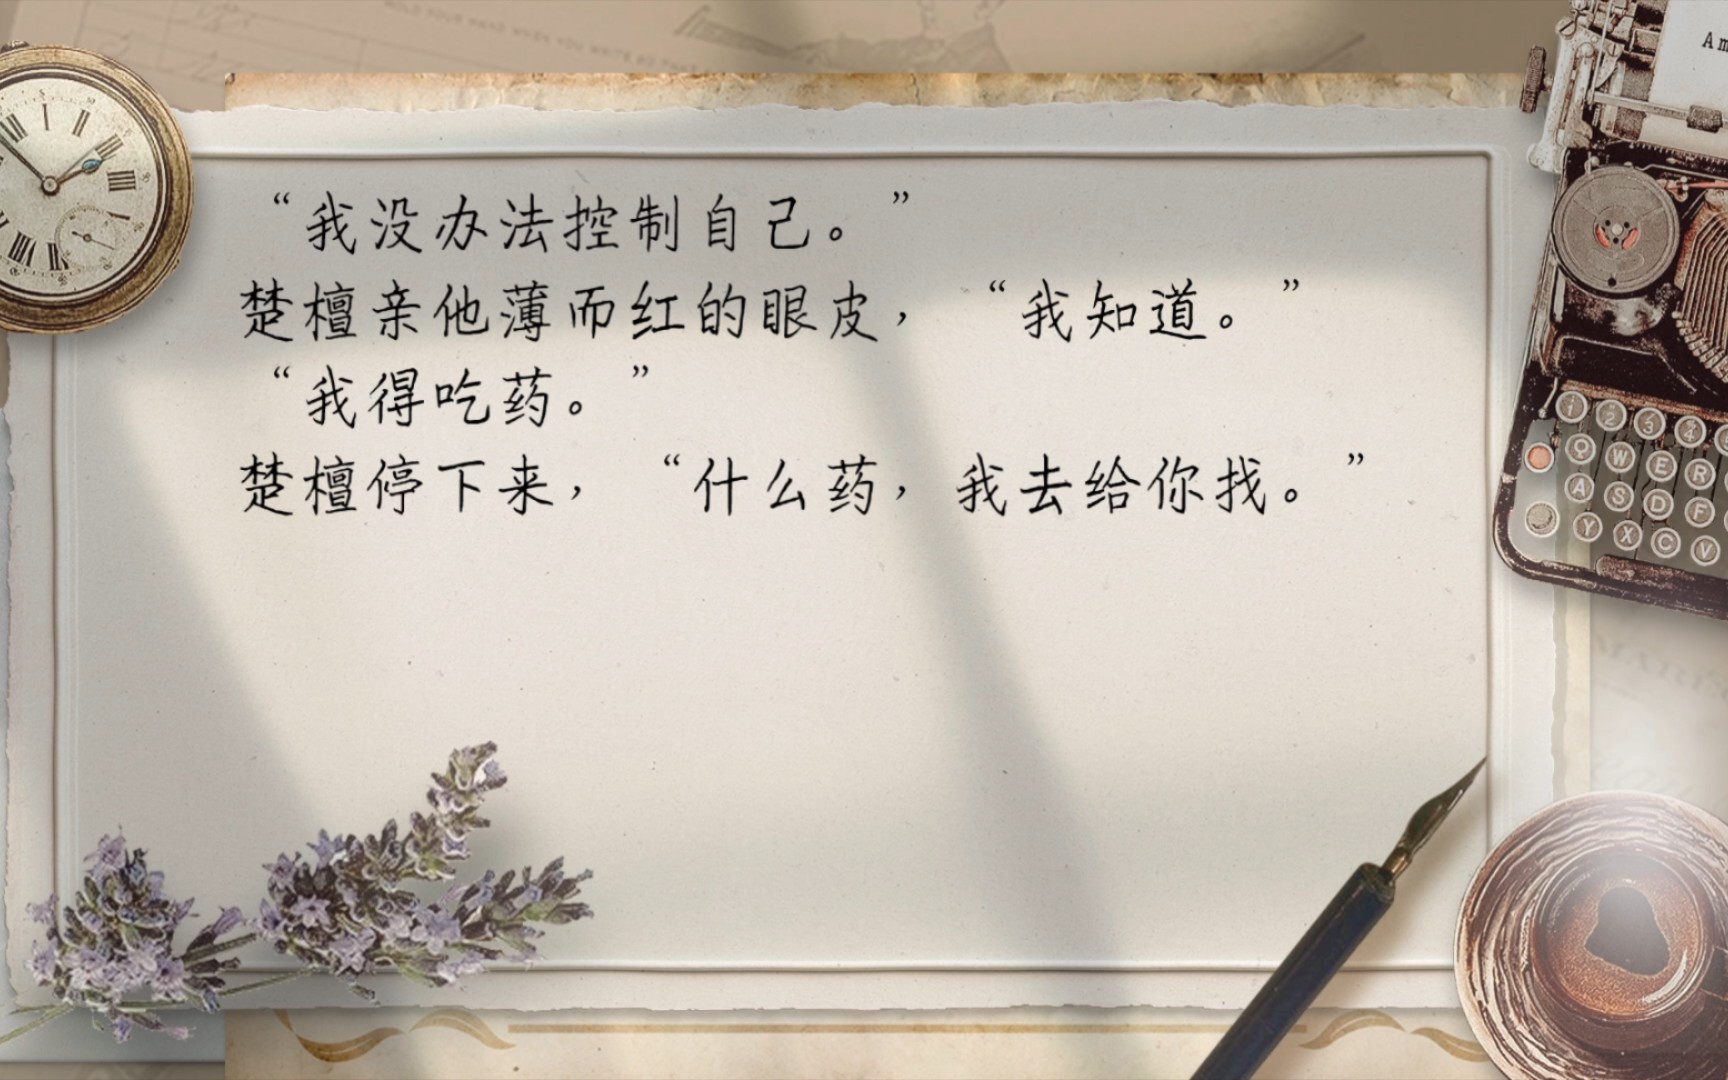 “我没办法控制自己。”
楚檀亲他薄而红的眼皮，“我知道。”
“我得吃药。”
楚檀停下来，“什么药，我去给你找。”
Am
1 2 3 4
Q W E R
A S D F
Y X C V